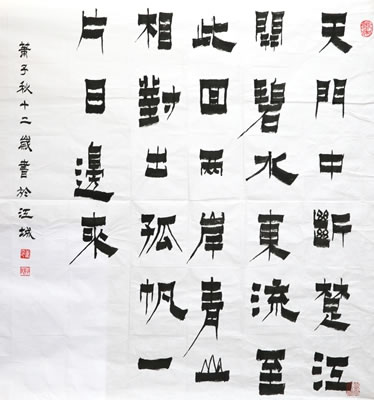 天門中斷楚江
開碧水東流至
此回兩岸青山
相對出孤帆一
片日邊來
蕭子秋十二歲書於江城